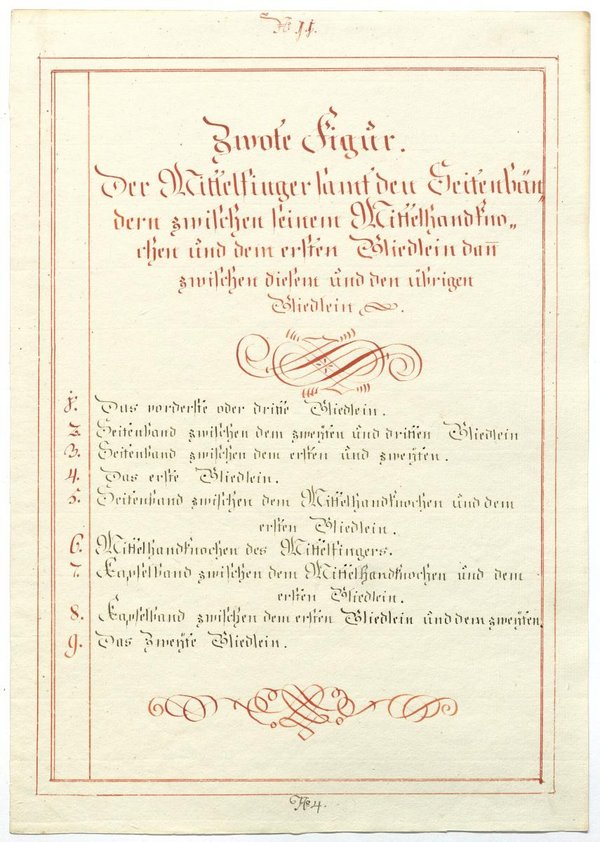 No 11.
Zwote Figur.
Der Mittelfinger samt den Seitenbän„
dern zwischen seinem Mittelhandkno„
chen und dem ersten Gliedlein dan̄
zwischen diesem und den übrigen
Gliedlein.
1. Das vorderste oder dritte Gliedlein.
2. Seitenband zwischen dem zweyten und dritten Gliedlein
3. Seitenband zwischen dem ersten und zweyten.
4. Das erste Gliedlein.
5. Seitenband zwischen dem Mittelhandknochen und dem
ersten Gliedlein.
6. Mittelhandknochen des Mittelfingers.
7. Kapselband zwischen dem Mittelhandknochen und dem
ersten Gliedlein.
8. Kapselband zwischen dem ersten Gliedlein und dem zweyten.
9. Das Zweyte Gliedlein.
No 4.